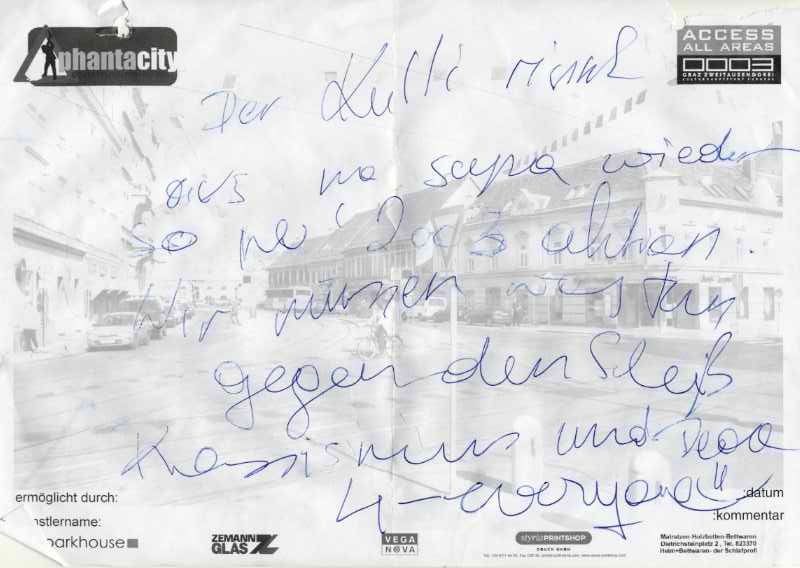 phantacity
ACCESS
ALL AREAS
0003
GRAZ ZWEITAUSENDDREI
Der Kulli nimmt
aus na supa wieder
so ne 2003 aktion.
Wir müssen was tun
gegen den Scheiß
Rassismus und Peace
4-everyone"
ermöglicht durch:
:datum
:kommentar
nstlername:
parkhouse
ZEMANN
GLAS
VEGA
NOVA
styriaPRINTSHOP
DRUCK GMBH
Matratzen-Holzbetten-Bettwaren
Dietrichsteinplatz 2 , Tel. 823370
Heim+Bettwaren- der Schlafprofi